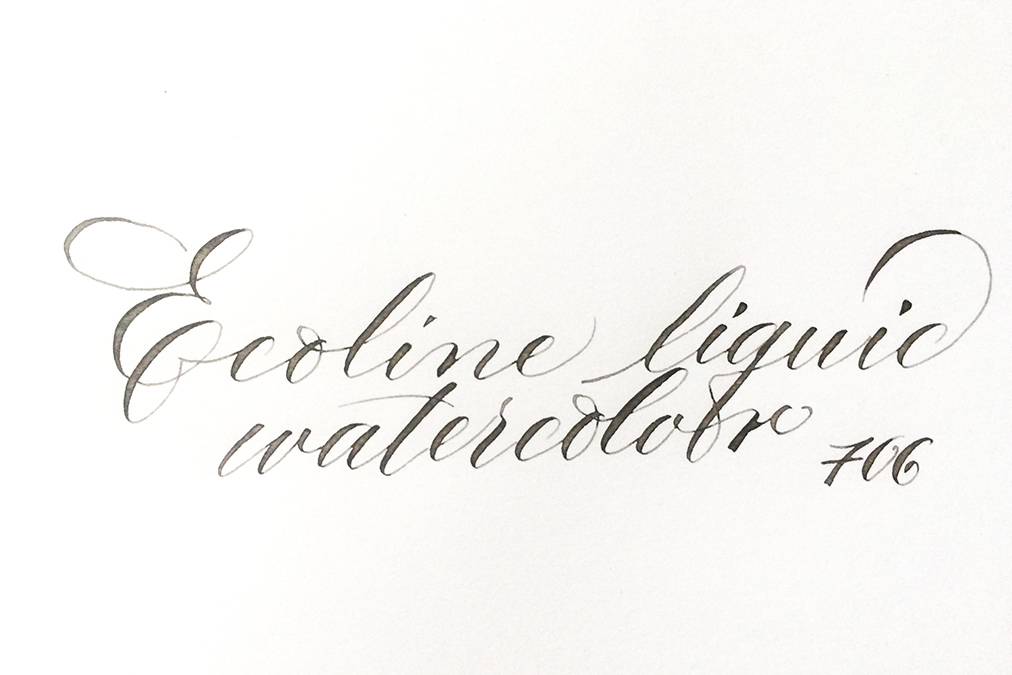 Ecoline liquid
watercolor 706